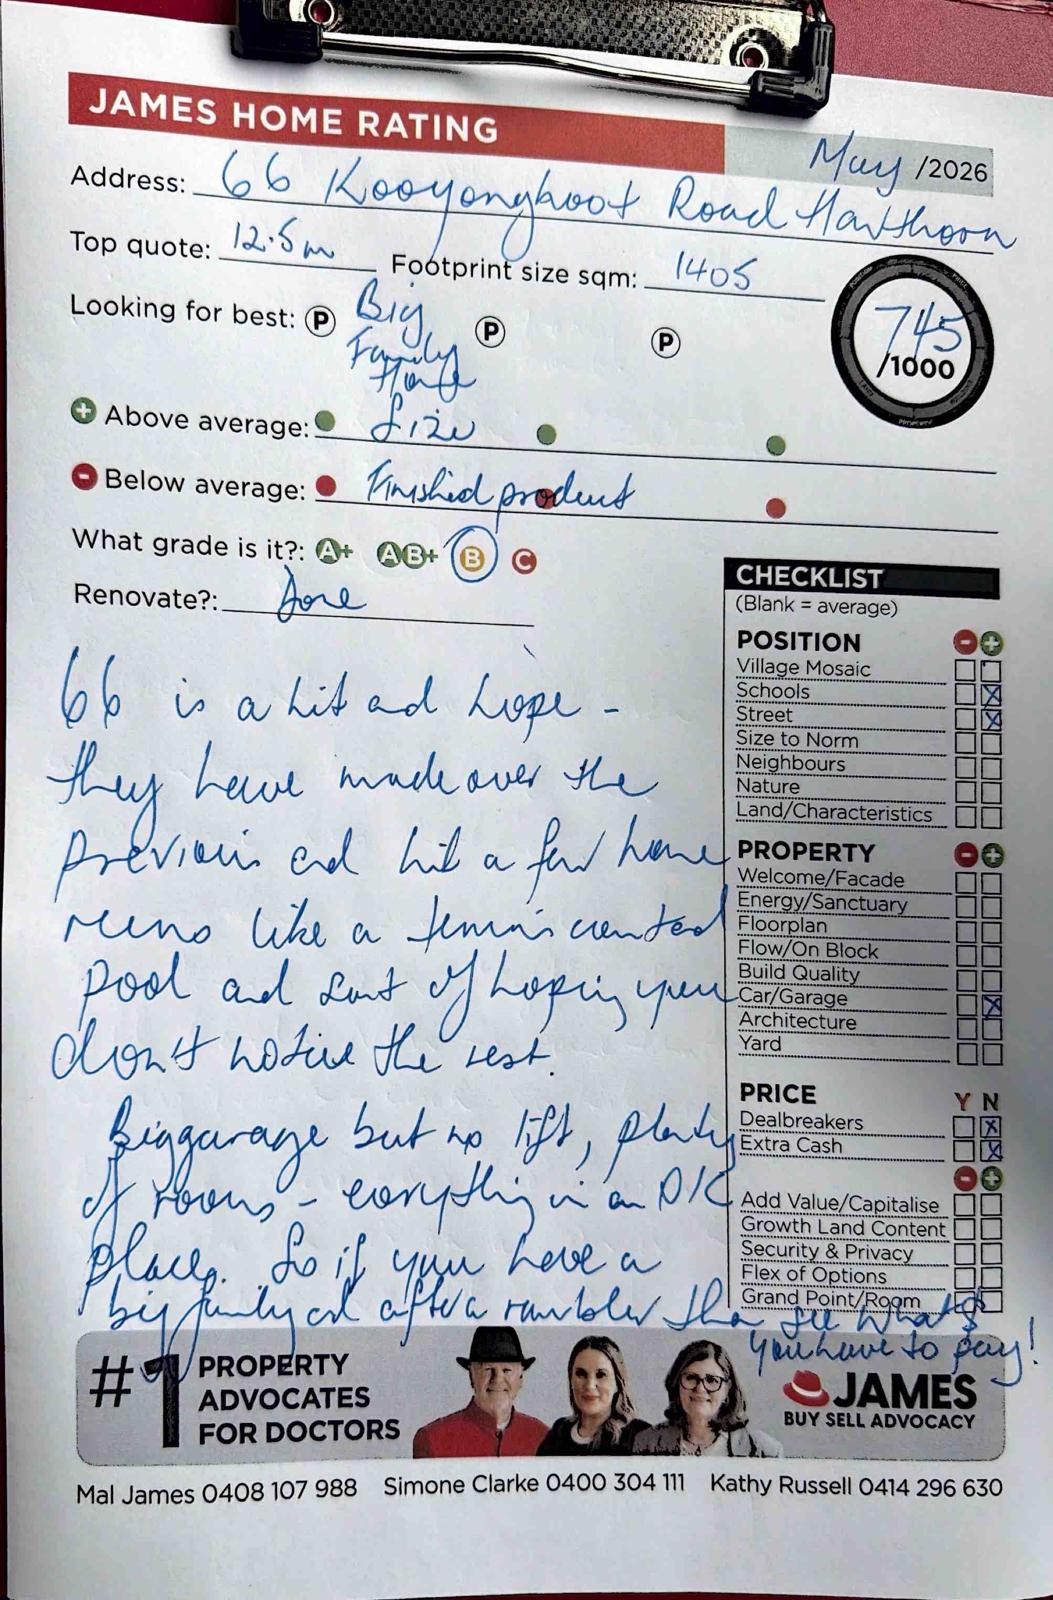 JAMES HOME RATING
May /2026
Address: 66 Kooyongkoot Road Hawthorn
Top quote: 12.5m Footprint size sqm: 1405
745
/1000
Looking for best: P Big Family Home P P
+ Above average: Size
- Below average: Finished product
What grade is it?: A+ AB+ B C
Renovate?: Done
66 is a hit and hope -
they have made over the
previous and hit a few home
runs like a tennis court and
pool and sort of hoping you
don't notice the rest.
Big garage but no lift, plenty
of rooms - everything in an O/K
place. So if you have a
big family and after a rambler then see what
you have to pay!
CHECKLIST
(Blank = average)
POSITION - +
Village Mosaic
Schools X
Street X
Size to Norm
Neighbours
Nature
Land/Characteristics
PROPERTY - +
Welcome/Facade
Energy/Sanctuary
Floorplan
Flow/On Block
Build Quality
Car/Garage X
Architecture
Yard
PRICE Y N
Dealbreakers X
Extra Cash X
- +
Add Value/Capitalise
Growth Land Content
Security & Privacy
Flex of Options
Grand Point/Room
#1 PROPERTY
ADVOCATES
FOR DOCTORS
JAMES
BUY SELL ADVOCACY
Mal James 0408 107 988 Simone Clarke 0400 304 111 Kathy Russell 0414 296 630